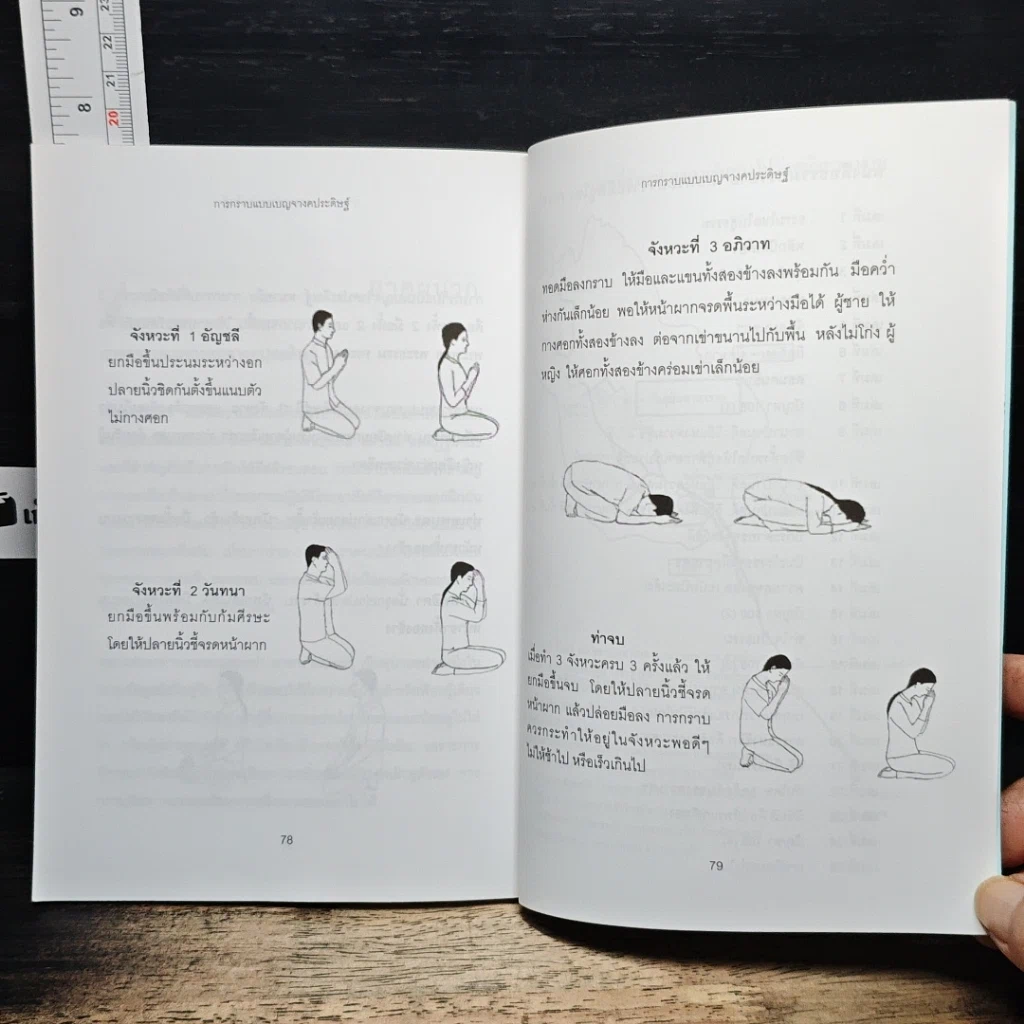 การกราบแบบเบญจางคประดิษฐ์
จังหวะที่ 1 อัญชลี
ยกมือขึ้นประนมระหว่างอก
ปลายนิ้วชิดกันตั้งขึ้นแนบตัว
ไม่กางศอก
จังหวะที่ 2 วันทนา
ยกมือขึ้นพร้อมกับก้มศีรษะ
โดยให้ปลายนิ้วชี้จรดหน้าผาก
78
การกราบแบบเบญจางคประดิษฐ์
จังหวะที่ 3 อภิวาท
ทอดมือลงกราบ ให้มือและแขนทั้งสองข้างลงพร้อมกัน มือคว่ำ
ห่างกันเล็กน้อย พอให้หน้าผากจรดพื้นระหว่างมือได้ ผู้ชาย ให้
กางศอกทั้งสองข้างลง ต่อจากเข่าขนานไปกับพื้น หลังไม่โก่ง ผู้
หญิง ให้ศอกทั้งสองข้างคร่อมเข่าเล็กน้อย
ท่าจบ
เมื่อทำ 3 จังหวะครบ 3 ครั้งแล้ว ให้
ยกมือขึ้นจบ โดยให้ปลายนิ้วชี้จรด
หน้าผาก แล้วปล่อยมือลง การกราบ
ควรกระทำให้อยู่ในจังหวะพอดีๆ
ไม่ให้ช้าไป หรือเร็วเกินไป
79
9
8
23
22
21
20